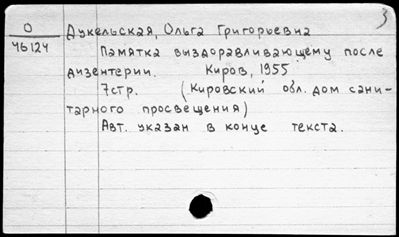 3
О Дукельская, Ольга Григорьевна
46124
Памятка выздоравливающему после
дизентерии. Киров, 1955
7стр. (Кировский обл. дом сани-
тарного просвещения)
Авт. указан в конце текста.